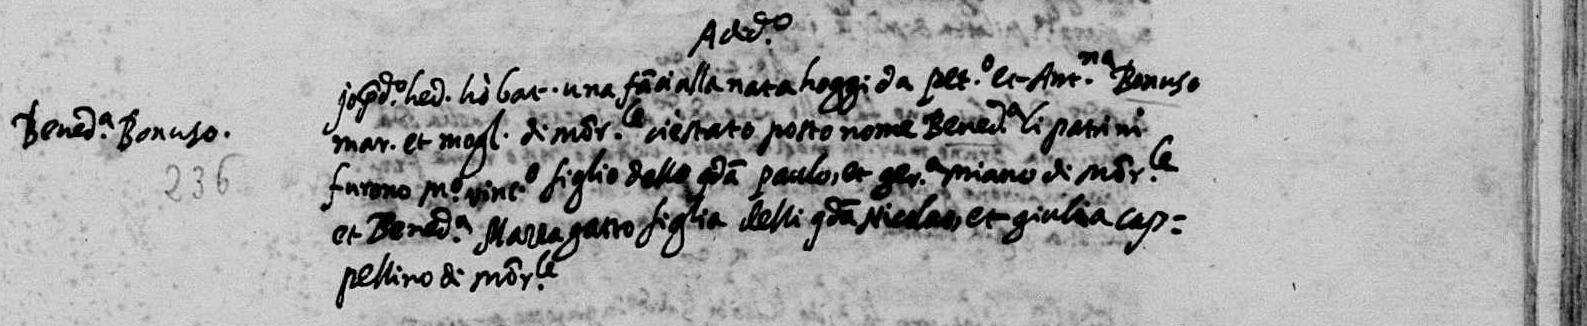 A dd.o
Bened.a Bonuso.
236
io pd.o hed. hò bat. una fāciulla nata hoggi da Pet.o et Ant.na Bonuso
mar. et mogl. di Mōr.le ci è stato posto nome Bened.a li patrini
furono m.o vinc.o figlio delli qdā paulo, et ger.a miano di Mōr.le
et Bened.a Marragatto figlia delli qdā Nicolao, et giulia cap=
pellino di Mōr.le